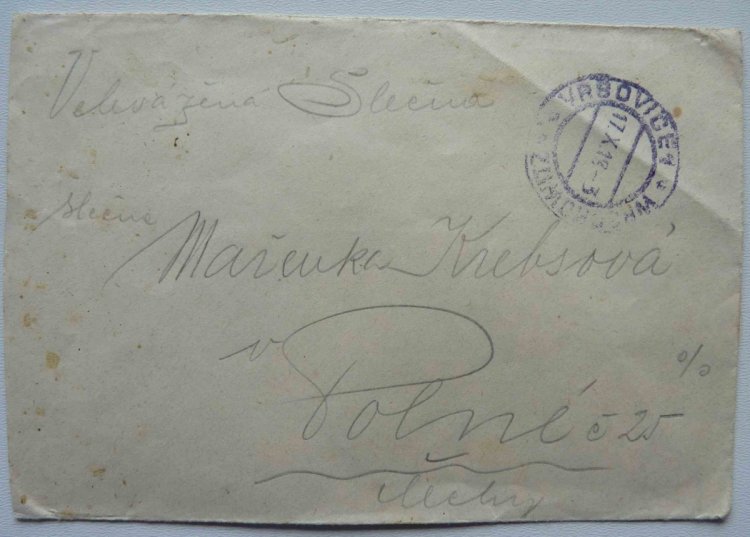 Velevážená Slečna
VRŠOVICE 1
17.X.18-3
slečna
Mařenka Krebsová
v
Polné č 25
Čechy